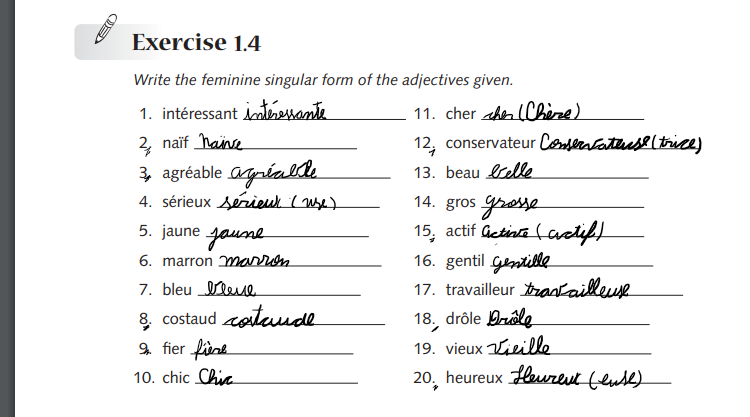 Exercise 1.4
Write the feminine singular form of the adjectives given.
1. intéressant intéressante
2. naïf naïve
3. agréable agréable
4. sérieux sérieux (use)
5. jaune jaune
6. marron marron
7. bleu bleue
8. costaud costaude
9. fier fière
10. chic Chic
11. cher cher (Chère)
12. conservateur Conservateuse (trice)
13. beau belle
14. gros grosse
15. actif active (actif)
16. gentil gentille
17. travailleur travailleuse
18. drôle Drôle
19. vieux Vieille
20. heureux Heureux (euse)